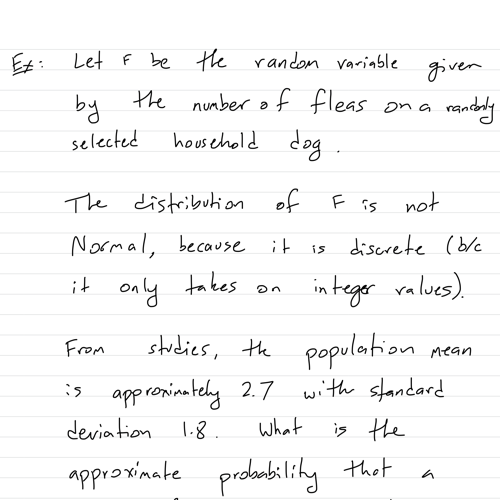 Ex: Let F be the random variable given
by the number of fleas on a randomly
selected household dog.
The distribution of F is not
Normal, because it is discrete (b/c
it only takes on integer values).
From studies, the population mean
is approximately 2.7 with standard
deviation 1.8. What is the
approximate probability that a